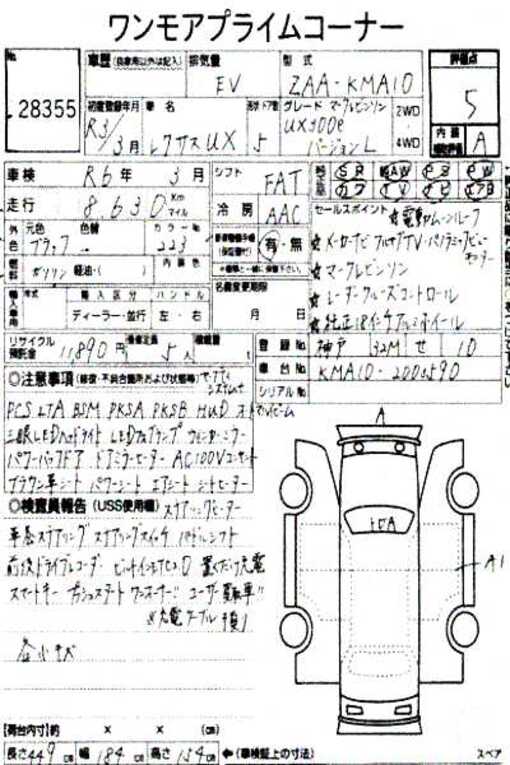 ワンモアプライムコーナー
No. 28355
車歴 (自家用以外は記入) 排気量 EV 型式 ZAA-KMA10 評価点 5
初度登録年月 R3/3月 車名 レクサスUX 形状 ドア数 5 グレード マークレビンソン UX300e バージョンL 2WD 4WD 内装 A
車検 R6年 3月 シフト FAT SR AW PS PW
走行 8.630 Km マイル 冷房 AAC カワ TV ナビ エアB
外色 元色 ブラック 色替 カラーNo. 223 有・無
セールスポイント ☆電動ムーンルーフ
☆メーカーナビ フルセグTV パノラミックビューモニター
燃料 ガソリン 軽油・( ) 内装色
☆マークレビンソン
輸入車用 年式 輸入区分 ハンドル 名義変更期限
☆レーダークルーズコントロール
ディーラー・並行 左・右 月 日
☆純正18インチアルミホイール
リサイクル預託金 11,890円 乗車定員 5人 積載量 t 登録No. 神戸 32M せ 10
◎注意事項 (修復・不具合箇所および状態等) セーフティシステム+
車台No. KMA10-2000590
シリアルNo.
PCS LTA BSM PKSA PKSB HUD オートマチックハイビーム
三眼LEDヘッドライト LEDフォグランプ ウインカーミラー
パワーバックドア ドアミラーヒーター AC100Vコンセント
ブラウン革シート パワーシート エアシート シートヒーター
◎検査員報告 (USS使用欄) ステアリングヒーター
革巻ステアリング ステアリングスイッチ パドルシフト
前後ドライブレコーダー ビルトインETC2.0 置くだけ充電
スマートキー プッシュスタート ワンオーナー!! ユーザー買取車!!
※充電ケーブル
各小キズ
A
トビA
A1
【荷台内寸】約 × × (cm)
長さ449cm 幅184cm 高さ154cm ←(車検証上の寸法) スペア